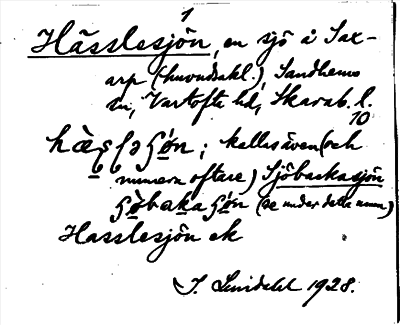 1
Hässlesjön, en sjö å Sax-
arp (huvudsakl.), Sandhems
sn, Vartofta hd, Skarab. l.
10
; kallas även (och
numera oftare) Sjöbackasjön
(se under detta namn)
Hasslesjön ek
J. Lindahl 1928.